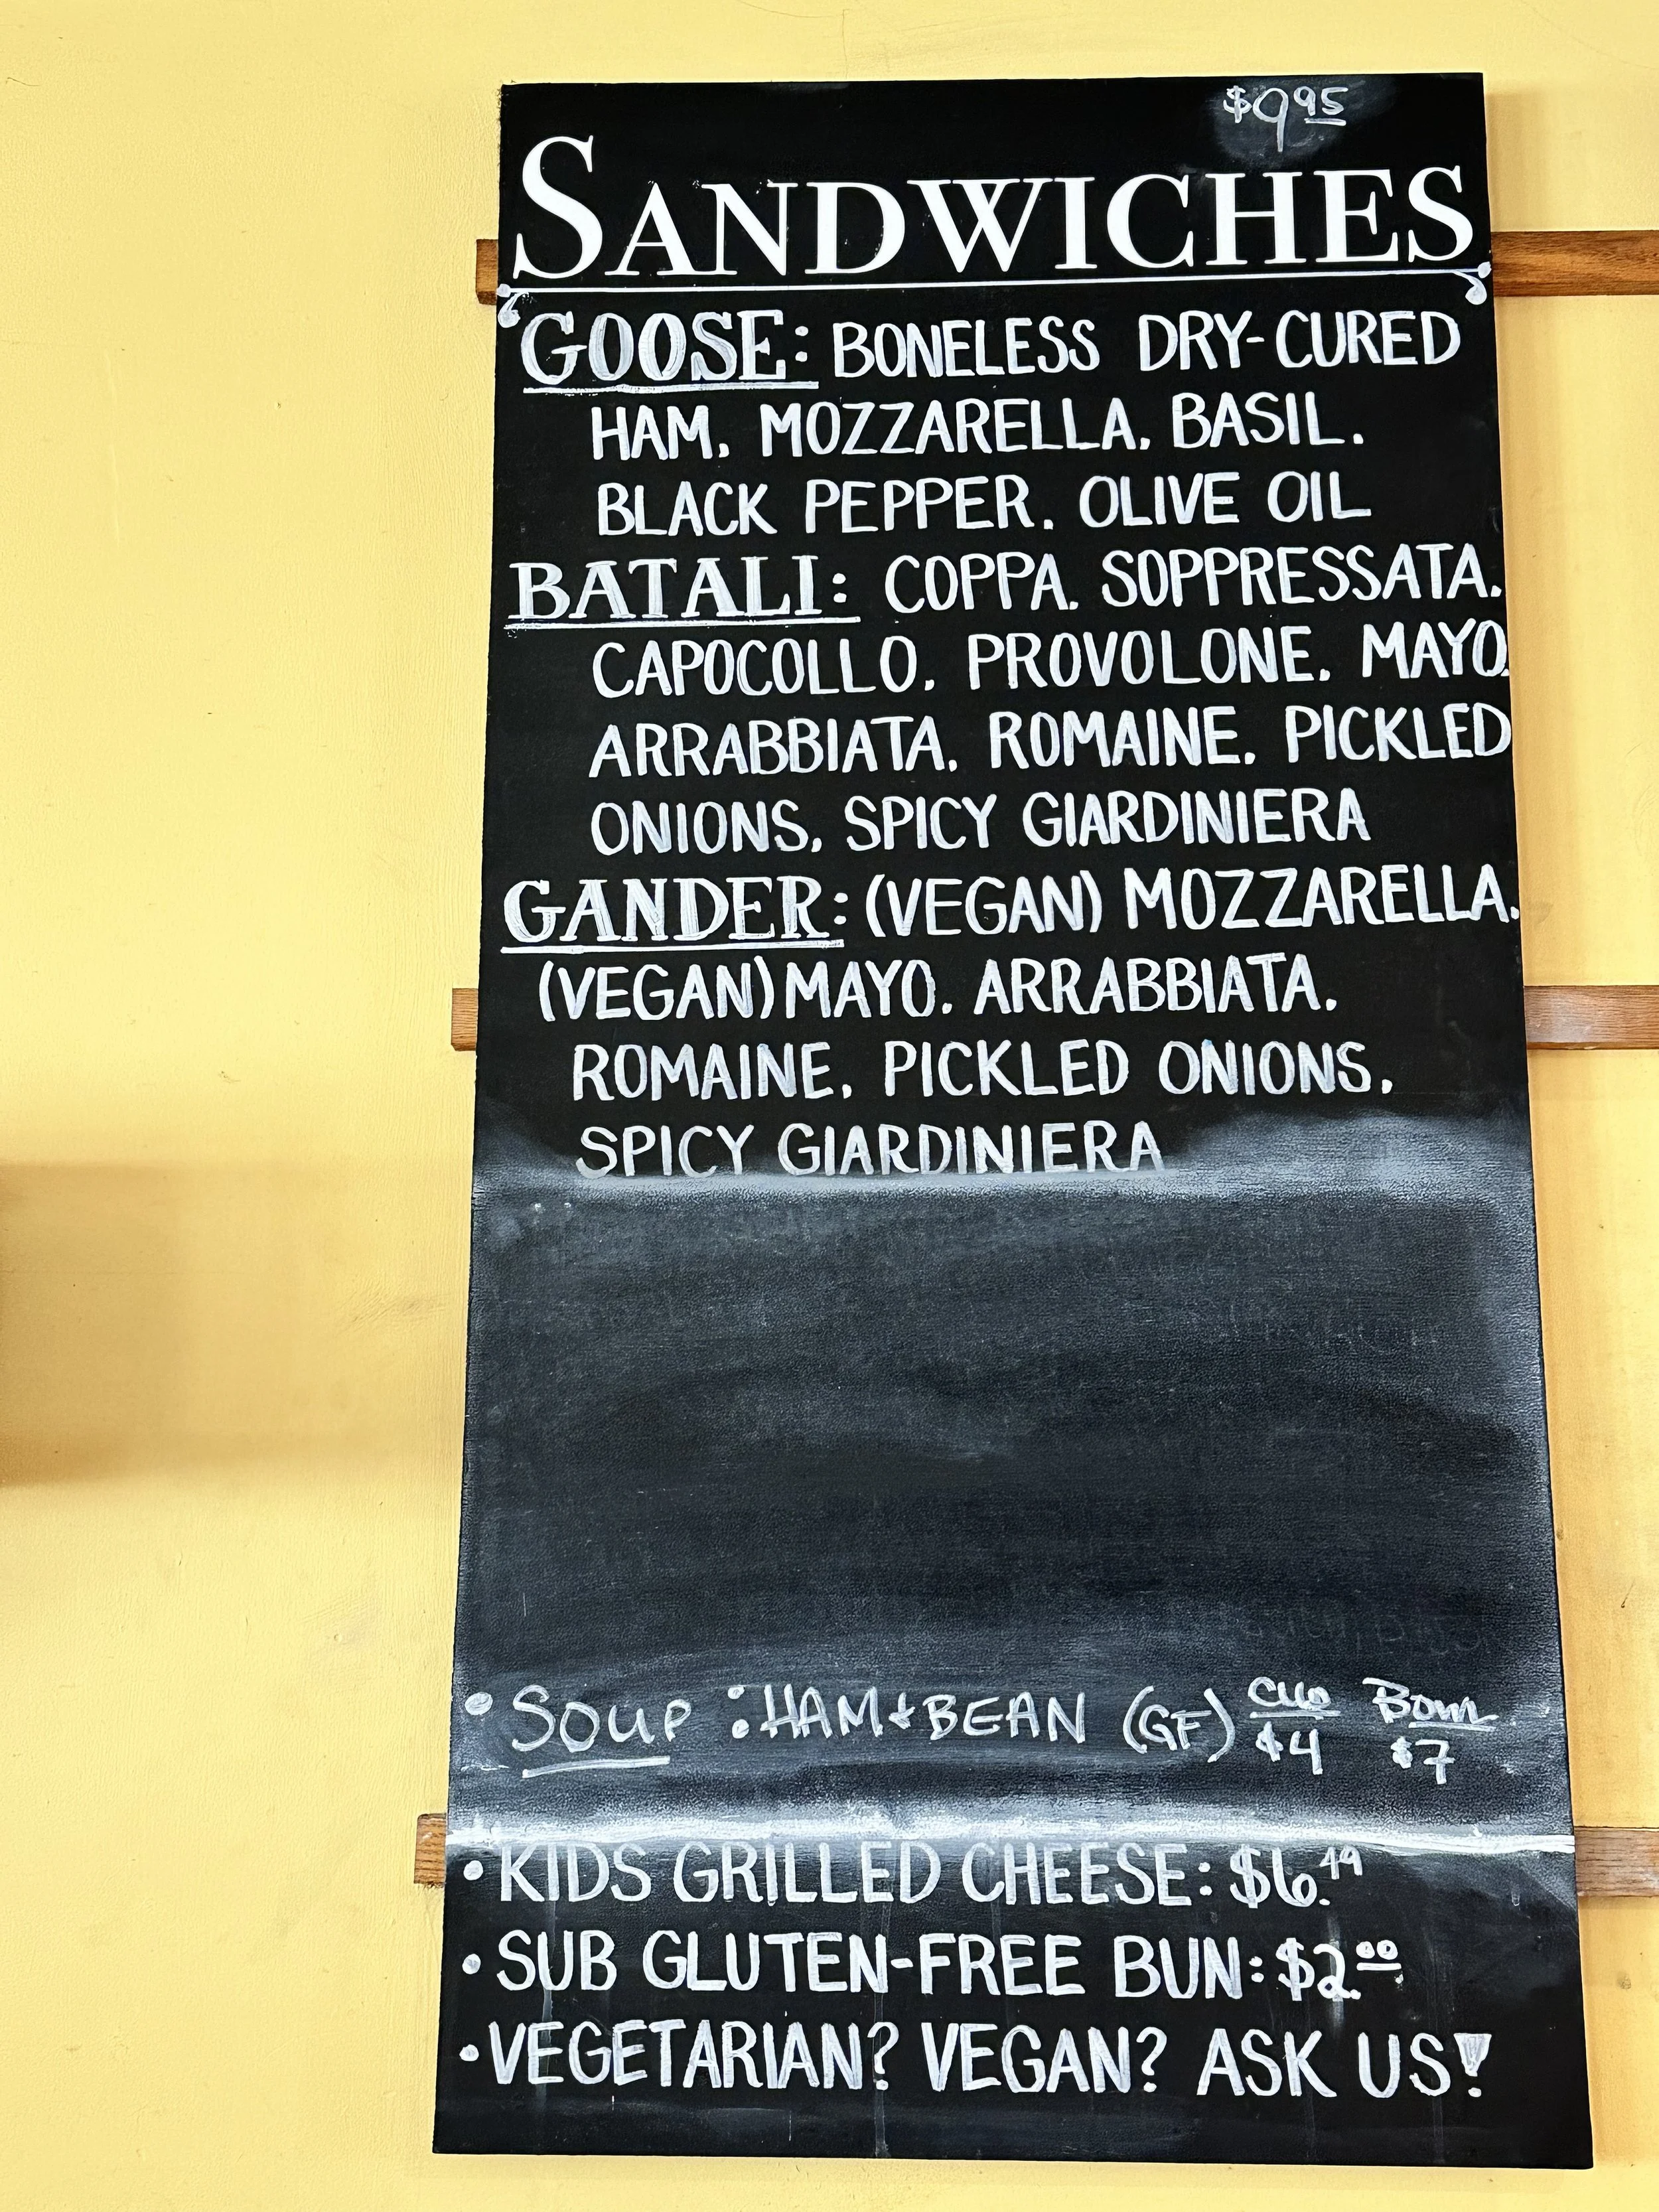 $9.95
SANDWICHES
GOOSE: BONELESS DRY-CURED
HAM, MOZZARELLA, BASIL,
BLACK PEPPER, OLIVE OIL
BATALI: COPPA, SOPPRESSATA,
CAPOCOLLO, PROVOLONE, MAYO,
ARRABBIATA, ROMAINE, PICKLED
ONIONS, SPICY GIARDINIERA
GANDER: (VEGAN) MOZZARELLA,
(VEGAN) MAYO, ARRABBIATA,
ROMAINE, PICKLED ONIONS,
SPICY GIARDINIERA
• SOUP: HAM + BEAN (GF) CUP $4 BOWL $7
• KIDS GRILLED CHEESE: $6.49
• SUB GLUTEN-FREE BUN: $2.00
• VEGETARIAN? VEGAN? ASK US!